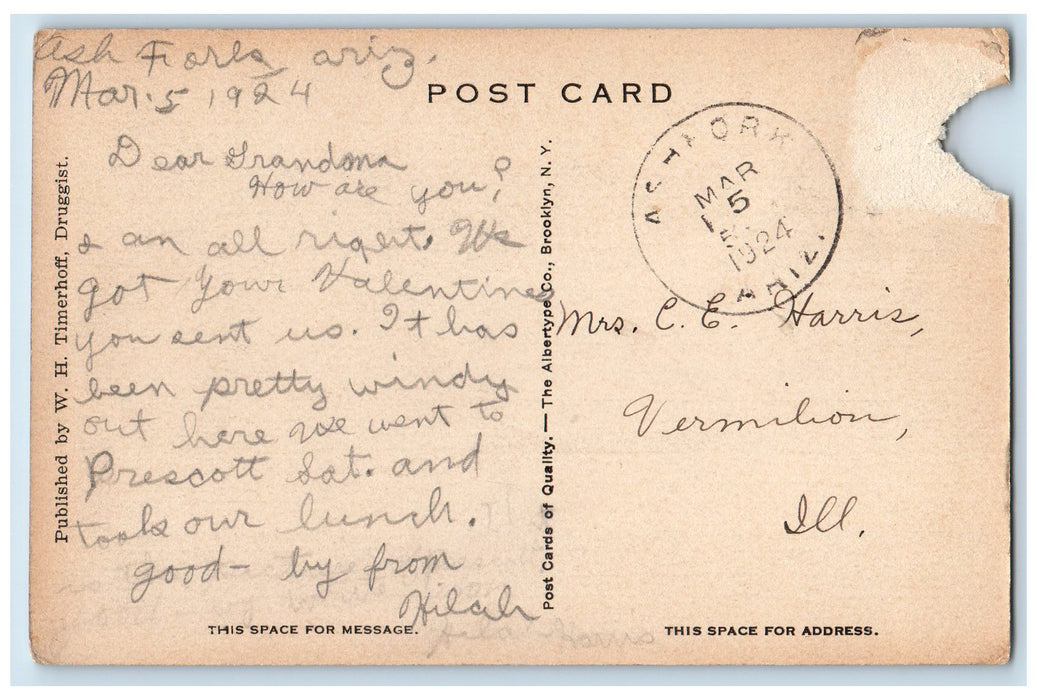 Ash Forks ariz.
Mar. 5 1924
POST CARD
ASH FORK
MAR
5
1924
ARIZ.
Dear Grandma
How are you?
I am all right. We
got your Valentines
you sent us. It has
been pretty windy
out here we went to
Prescott Sat. and
took our lunch.
good-by from
Hilah
Mrs. C. E. Harris,
Vermilion,
Ill.
Published by W. H. Timerhoff, Druggist.
Post Cards of Quality. — The Albertype Co., Brooklyn, N. Y.
THIS SPACE FOR MESSAGE.
THIS SPACE FOR ADDRESS.
Harris